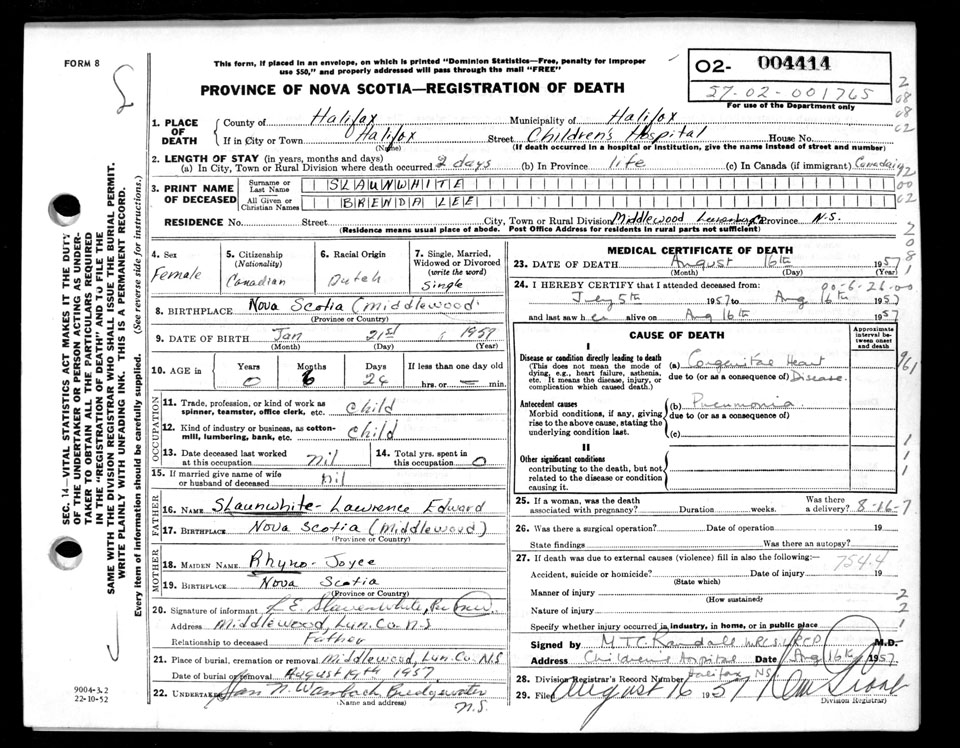 FORM 8
This form, if placed in an envelope, on which is printed "Dominion Statistics—Free, penalty for improper
use $50," and properly addressed will pass through the mail "FREE"
O2- 004414
57-02-001765
For use of the Department only
PROVINCE OF NOVA SCOTIA—REGISTRATION OF DEATH
1. PLACE OF DEATH
County of Halifax Municipality of Halifax
If in City or Town Halifax Street Children's Hospital House No.
(Name) (If death occurred in a hospital or institution, give the name instead of street and number)
2. LENGTH OF STAY (in years, months and days)
(a) In City, Town or Rural Division where death occurred 2 days (b) In Province life (c) In Canada (if immigrant) Canadian
3. PRINT NAME OF DECEASED
Surname or Last Name SLAUNWHITE
All Given or Christian Names BRENDA LEE
RESIDENCE No. Street City, Town or Rural Division Middlewood Province N.S.
(Residence means usual place of abode. Post Office Address for residents in rural parts not sufficient)
4. Sex
Female
5. Citizenship (Nationality)
Canadian
6. Racial Origin
Dutch
7. Single, Married, Widowed or Divorced (write the word)
Single
8. BIRTHPLACE Nova Scotia (Middlewood)
(Province or Country)
9. DATE OF BIRTH Jan 21st
(Month) (Day) (Year)
10. AGE in Years Months Days If less than one day old
0 6 26 hrs. or min.
OCCUPATION
11. Trade, profession, or kind of work as spinner, teamster, office clerk, etc. child
12. Kind of industry or business, as cotton-mill, lumbering, bank, etc. child
13. Date deceased last worked at this occupation nil
14. Total yrs. spent in this occupation 0
15. If married give name of wife or husband of deceased nil
FATHER
16. NAME Slaunwhite- Lawrence Edward
17. BIRTHPLACE Nova Scotia (Middlewood)
(Province or Country)
MOTHER
18. MAIDEN NAME Rhyno- Joyce
19. BIRTHPLACE Nova Scotia
(Province or Country)
20. Signature of informant L.E. Slaunwhite, Per
Address Middlewood, Lun. Co. N.S
Relationship to deceased Father
21. Place of burial, cremation or removal Middlewood, Lun. Co. N.S
Date of burial or removal August 19th 1957
22. Undertaker Bridgewater N.S.
(Name and address)
MEDICAL CERTIFICATE OF DEATH
23. DATE OF DEATH August 16th 1957
(Month) (Day) (Year)
24. I HEREBY CERTIFY that I attended deceased from:
July 5th 1957 to Aug 16th 1957
and last saw her alive on Aug 16th 1957
CAUSE OF DEATH
Approximate interval between onset and death
I
Disease or condition directly leading to death
(This does not mean the mode of dying, e.g., heart failure, asthenia, etc. It means the disease, injury, or complication which caused death.)
(a) Congenital Heart
due to (or as a consequence of) Disease.
Antecedent causes
Morbid conditions, if any, giving rise to the above cause, stating the underlying condition last.
(b) Pneumonia
due to (or as a consequence of)
(c)
II
Other significant conditions
contributing to the death, but not related to the disease or condition causing it.
25. If a woman, was the death associated with pregnancy? Duration weeks. Was there a delivery? 8-16-7
26. Was there a surgical operation? Date of operation 19
State findings Was there an autopsy?
27. If death was due to external causes (violence) fill in also the following:— 754.4
Accident, suicide or homicide? Date of injury 19
(State which)
Manner of injury
(How sustained)
Nature of injury
Specify whether injury occurred in industry, in home, or in public place
Signed by M.T.C. Randall MRCS. LRCP M.D.
Address Children's Hospital Date Aug 16th 1957
28. Division Registrar's Record Number Halifax NS
29. Filed August 16 1957
Division Registrar)
SEC. 14—VITAL STATISTICS ACT MAKES IT THE DUTY
OF THE UNDERTAKER OR PERSON ACTING AS UNDER-
TAKER TO OBTAIN ALL THE PARTICULARS REQUIRED
IN THE "REGISTRATION OF DEATH" AND TO FILE THE
SAME WITH THE DIVISION REGISTRAR WHO SHALL ISSUE THE BURIAL PERMIT.
WRITE PLAINLY WITH UNFADING INK. THIS IS A PERMANENT RECORD.
Every item of information should be carefully supplied. (See reverse side for instructions.)
9004-3.2
22-10-52